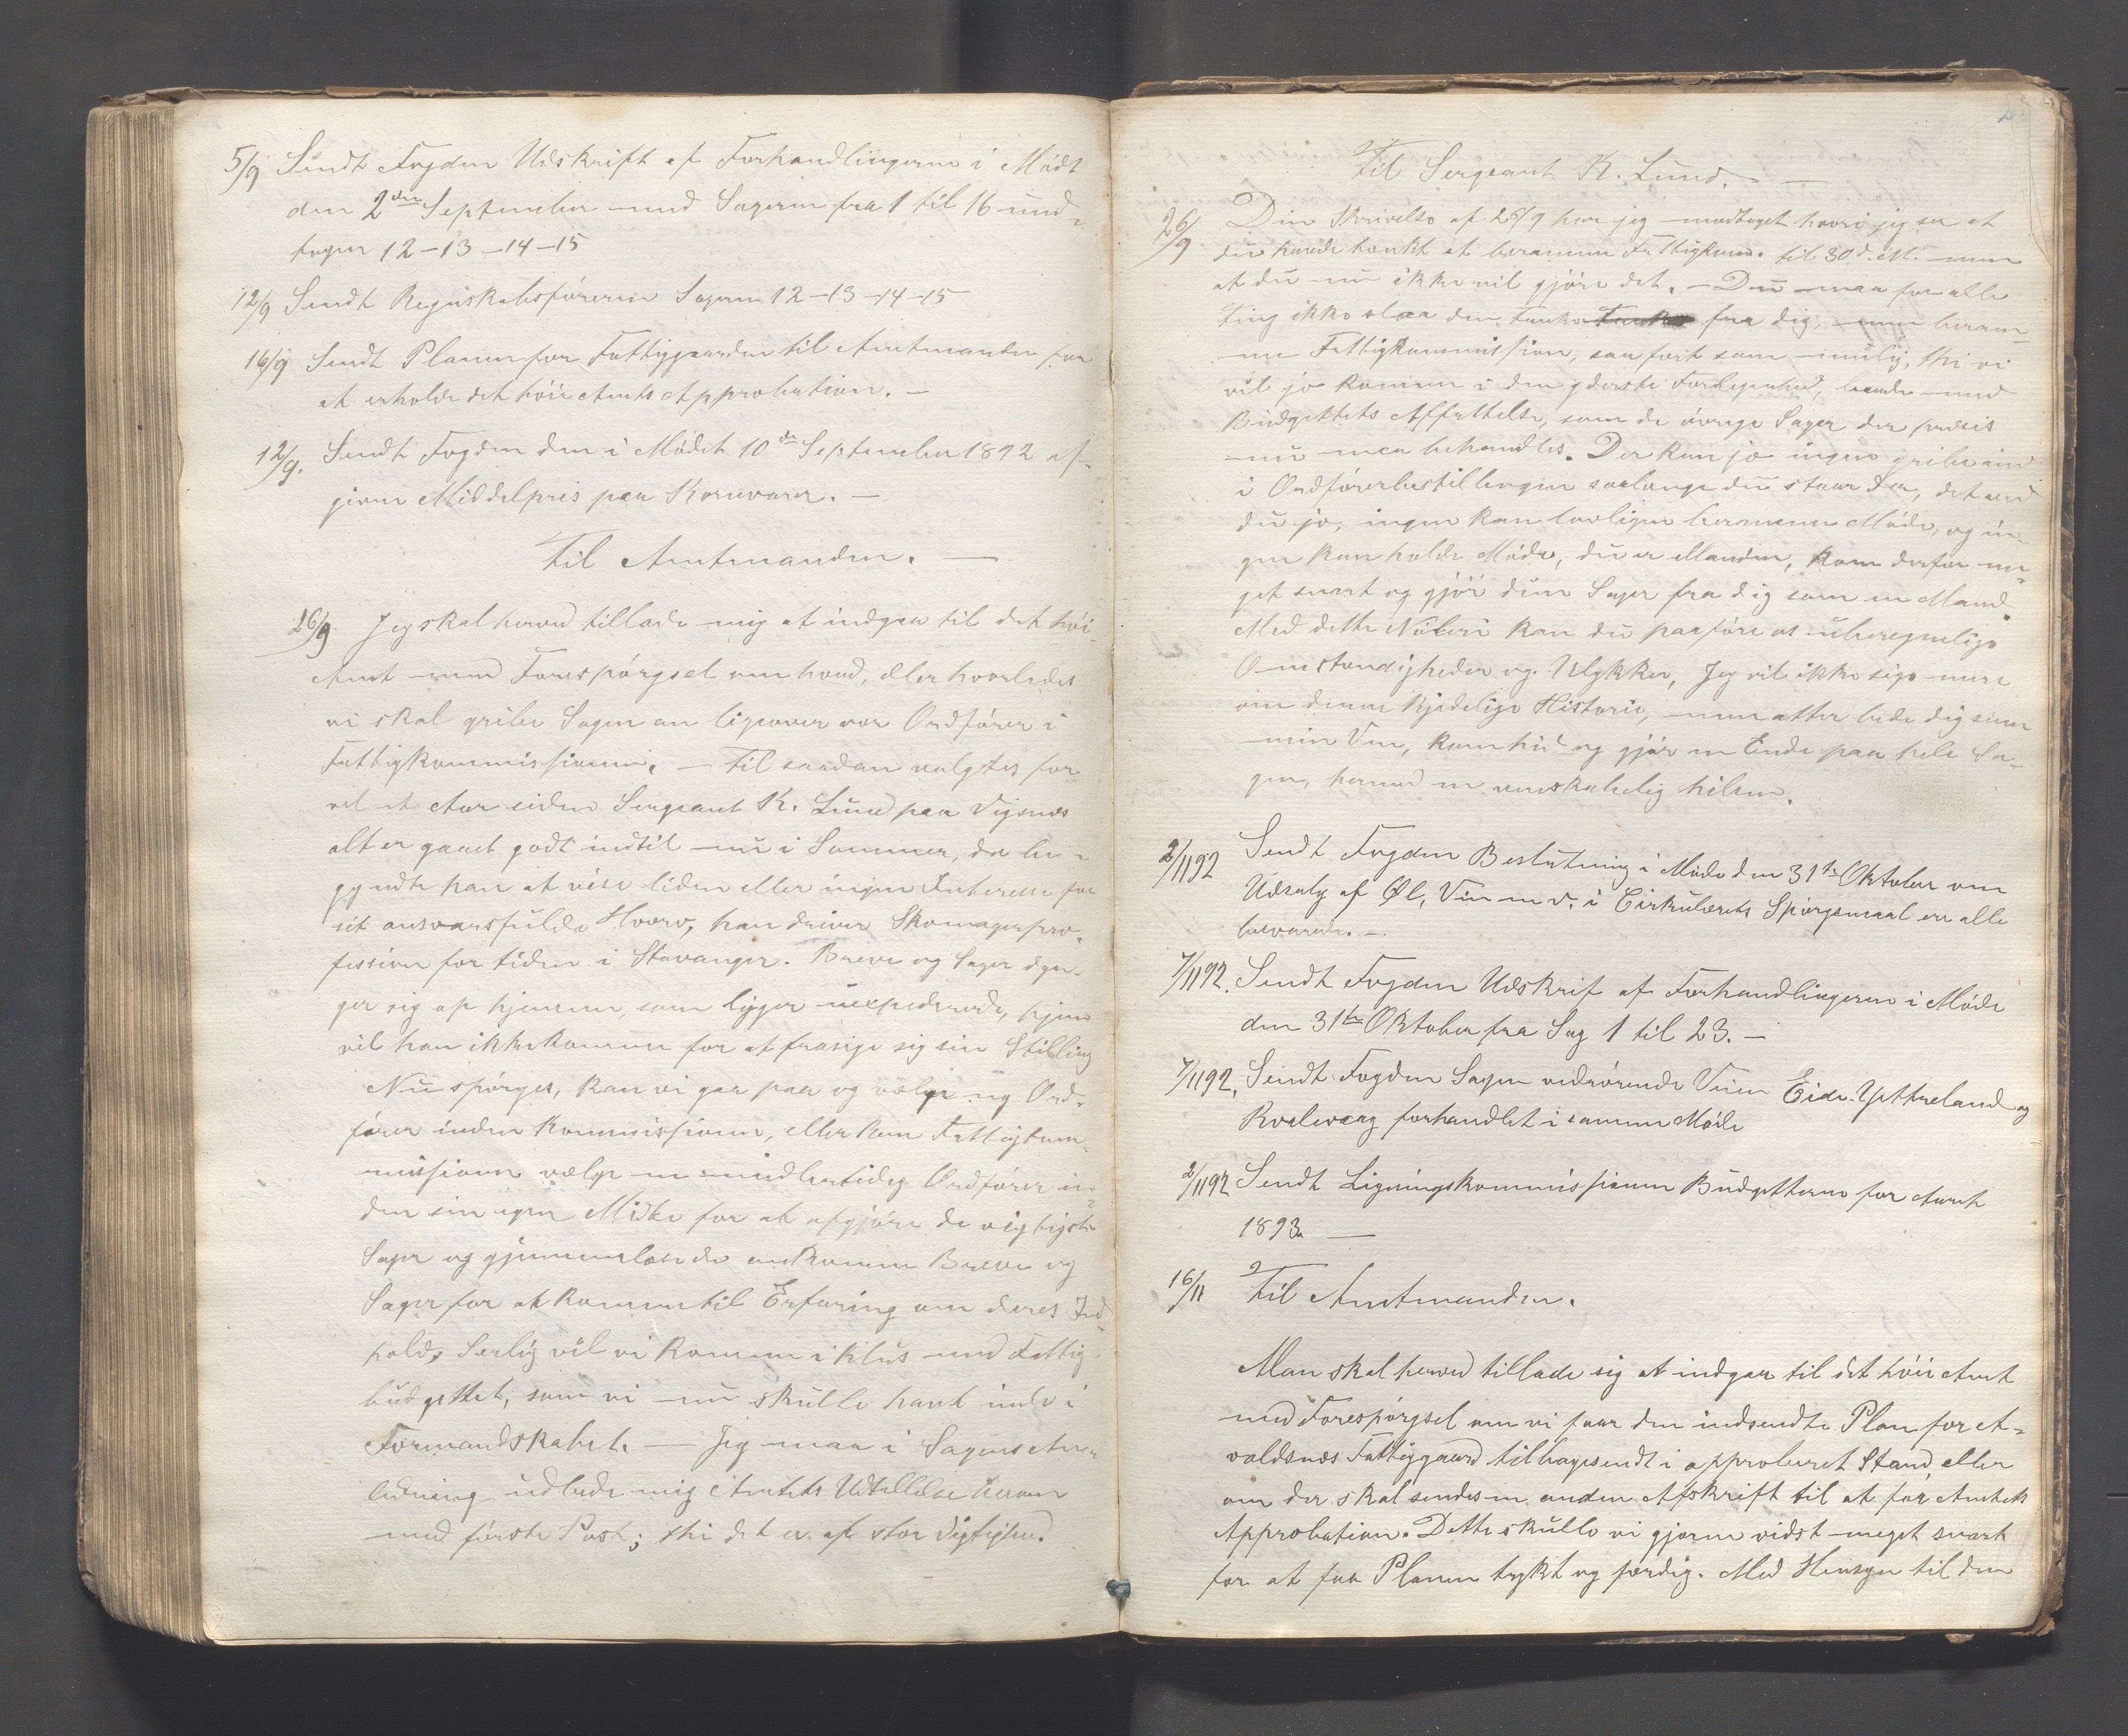 5/9 Sendt Fogden Udskrift af Forhandlingerne i Mödt
den 2den September med Sagerne fra 1 til 16 und-
tagen 12-13-14-15
12/9 Sendt Regnskabsföreren Sagerne 12-13-14-15
16/9 Sendt Planen for Fattiggaarden til Amtmanden for
at erholde det höie Amts Approbation. —
12/9. Sendt Fogden den i Mödet 10de September 1892 af-
givne Middelpris paa Kornvarer. —
Til Amtmanden. —
26/9 Jeg skal herved tillade mig at indgaa til det höi
Amt med Forespörgsel om hvad, eller hvorledes
vi skal gribe Sagen an ligeover vor Ordförer i
Fattigkommissionen. — Til saadan valgtes for
vel et Aar siden Sergeant K. Lund paa Vigsnæs
alt er gaaet godt indtil nu i Sommer, da be-
gyndte han at vise liden eller ingen Interesse for
sit ansvarsfulde Hverv, han driver Skomagerpro-
fession for tiden i Stavanger. Breve og Sager dyn-
ger sig op hjemme, som ligger uexpederede, hjem
vil han ikke komme for at frasige sig sin Stilling
Nu spörges, kan vi gaa paa og vælge ny Ord-
förer inden Kommissionen, eller kan Fattigkom-
missionen vælge en midlertidig Ordförer in-
den sin egen Midte for at afgjöre de vigtigste
Sager og gjennemlæse de ankomne Breve og
Sager for at komme til Erfaring om deres Ind-
hold, Serlig vil vi komme i Klus med Fattig-
budgettet, som vi nu skulle havt inde i
Formandskabet. — Jeg maa i Sagens An-
ledning udbede mig Amtets Udtallelse herom
med förste Post; thi det er af stor Vigtighed.
Til Sergeant K. Lund. —
26/9 Din Skrivelse af 26/9 har jeg modtaget hvori jeg ser at
du havde tænkt at beramme Fattigkom. til 30 d. M. men
at du nu ikke vil gjöre det. — Du maa for alle
Ting ikke slaa den Tanke fra dig, men beram-
me Fattigkommission, saa fort som mulig, thi vi
vil jo komme i den yderste Forlegenhed, baade med
Budgettets Affattelse, som de övrige Sager der præcis
nu maa behandles. Der kan jo ingen gribe ind
i Ordförerbestillingen saalænge du staar der, det ved
du jo, ingen kan lovligen beramme Möde, og in-
gen kan holde Möde, du er Manden, kom derfor me-
get snart og gjör dine Sager fra dig som en Mand.
Med dette Nöleri kan du paaföre os uberegnelige
Omstændigheder og Ulykker, Jeg vil ikke sige mere
om denne kjedelige Historie, men atter bede dig som
min Ven, kom hid og gjör en Ende paa hele Sa-
gen, hermed en venskabelig hilsen.
2/11 92 Sendt Fogden Beslutning i Möde den 31te Oktober om
Udsalg af Øl, Vin m v. i Cirkulærets Spörgsmaal ere alle
besvarede. —
7/11 92. Sendt Fogden Udskrif af Forhandlingerne i Möde
den 31te Oktober fra Sag 1 til 23. —
7/11 92. Sendt Fogden Sagen vedrörende Veien Eide-Yttreland og
Kvalevaag forhandlet i samme Möde
2/11 92 Sendt Ligningskommissionen Budgetterne for Aaret
1893. —
16/11 Til Amtmanden.
Man skal herved tillade sig at indgaa til det höie Amt
med Forespörgsel om vi faar den indsendte Plan for A-
valdsnæs Fattiggaard tilbagesendt i approberet Stand, eller
om der skal sendes en anden Afskrift til at faa Amtets
Approbation. Dette skulle vi gjerne vidst meget snart
for at faa Planen trykt og færdig. Med Hensyn til den